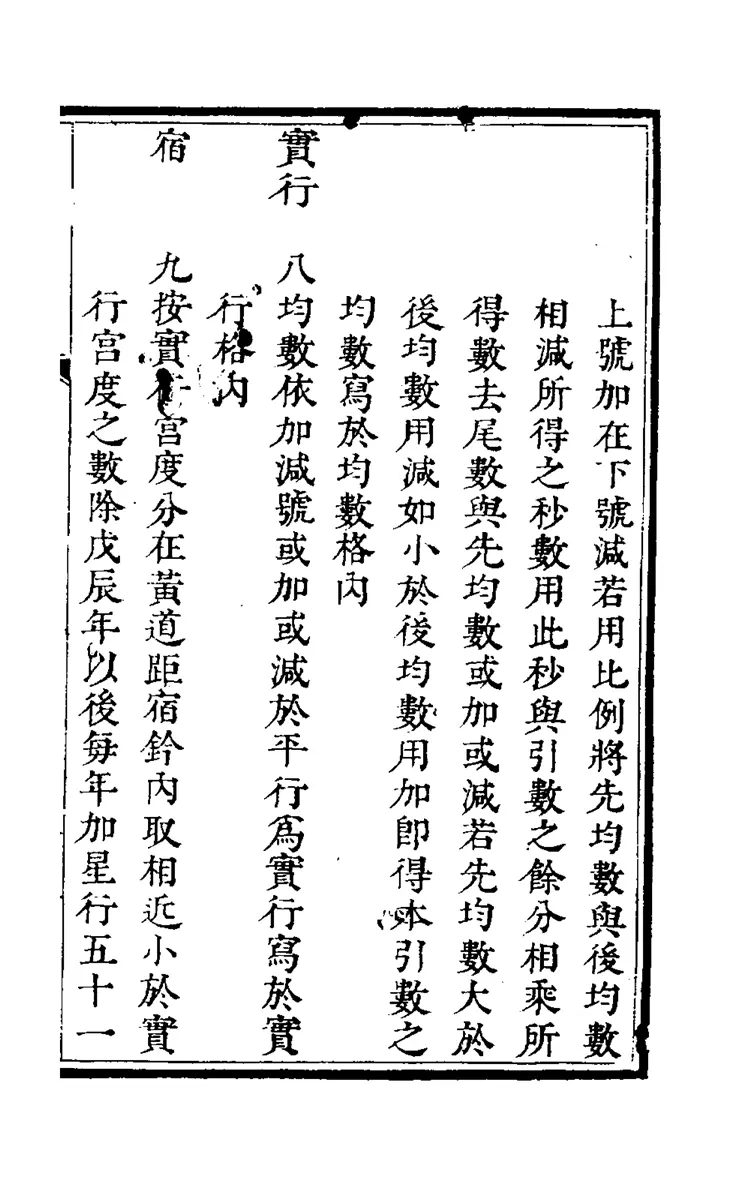 上號加在下號減若用比例將先均數與後均數
相減所得之秒數用此秒與引數之餘分相乘所
得數去尾數與先均數或加或減若先均數大於
後均數用減如小於後均數用加卽得本引數之
均數寫於均數格內
實行　八均數依加減號或加或減於平行爲實行寫於實
行格內
宿　九按實行宮度分在黃道距宿鈐內取相近小於實
行宮度之數除戊辰年以後每年加星行五十一